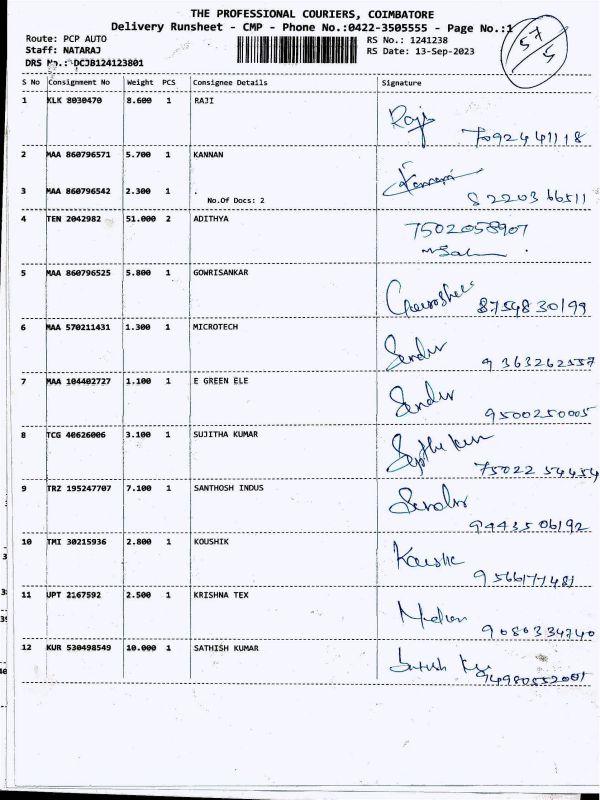 THE PROFESSIONAL COURIERS, COIMBATORE
Delivery Runsheet - CMP - Phone No.:0422-3505555 - Page No.:1
Route: PCP AUTO RS No.: 1241238
Staff: NATARAJ RS Date: 13-Sep-2023
DRS No.: DCJB124123801
57
5
S No Consignment No Weight PCS Consignee Details Signature
1 KLK 8030470 8.600 1 RAJI
Raji 7092441118
2 MAA 860796571 5.700 1 KANNAN
Kannan
3 MAA 860796542 2.300 1 .
No.Of Docs: 2 8220366511
4 TEN 2042982 51.000 2 ADITHYA 7502058907
5 MAA 860796525 5.800 1 GOWRISANKAR
8754830199
6 MAA 570211431 1.300 1 MICROTECH
9363262557
7 MAA 104402727 1.100 1 E GREEN ELE
9500250005
8 TCG 40626006 3.100 1 SUJITHA KUMAR
75022 54454
9 TRZ 195247707 7.100 1 SANTHOSH INDUS
9443506192
10 TMI 30215936 2.800 1 KOUSHIK
9566177481
11 UPT 2167592 2.500 1 KRISHNA TEX
9080334740
12 KUR 530498549 10.000 1 SATHISH KUMAR
94980552001